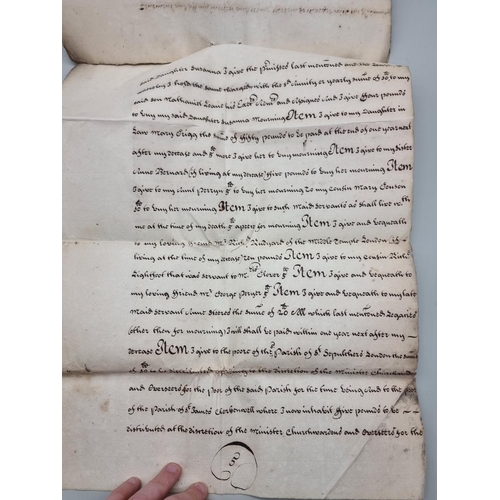 said Daughter Susanna I give the pmisses last mentioned and the
I hold the same charged with the sd Annuity or yearly sume of to my
said son Nathaniel his Execrs Admrs and Assignes And I give ffour pounds
to buy my said Daughter Susanna Mourning Item I give to my Daughter in
Law Mary the sume of ffifty pounds to be paid at the end of one year next
after my decease and more I give her to buy mourning Item I give to my sister
Anne Bernard if living at my decease five pounds to buy her mourning Item
I give to my Aunt Perryn to buy her mourning to my Cousin Mary
to buy her mourning Item I give to such Maid servants as shall live wth
me at the time of my death apeece for mourning Item I give and bequeath
to my loving friend Mr Richd Rudyard of the Midle Temple London if
living at the time of my decease Ten pounds Item I give to my Cousin Richd
Lightfoot that was servant to Mr Item I give and bequeath to
my loving friend Mr George Item I give and bequeath to my late
Maid servant Anne the sume of which last mentioned Legacies
other then for mourning I will shall be paid within one year next after my
decease Item I give to the poore of the Parish of St Sepulchers London the sume
of to be distributed at the discretion of the Minister Churchwardens
and Overseers for the poor of the said Parish for the time being And to the poor
of the Parish of St James Clerkenwell where I now inhabit five pounds to be
distributed at the discretion of the Minister Churchwardens and Overseers for the